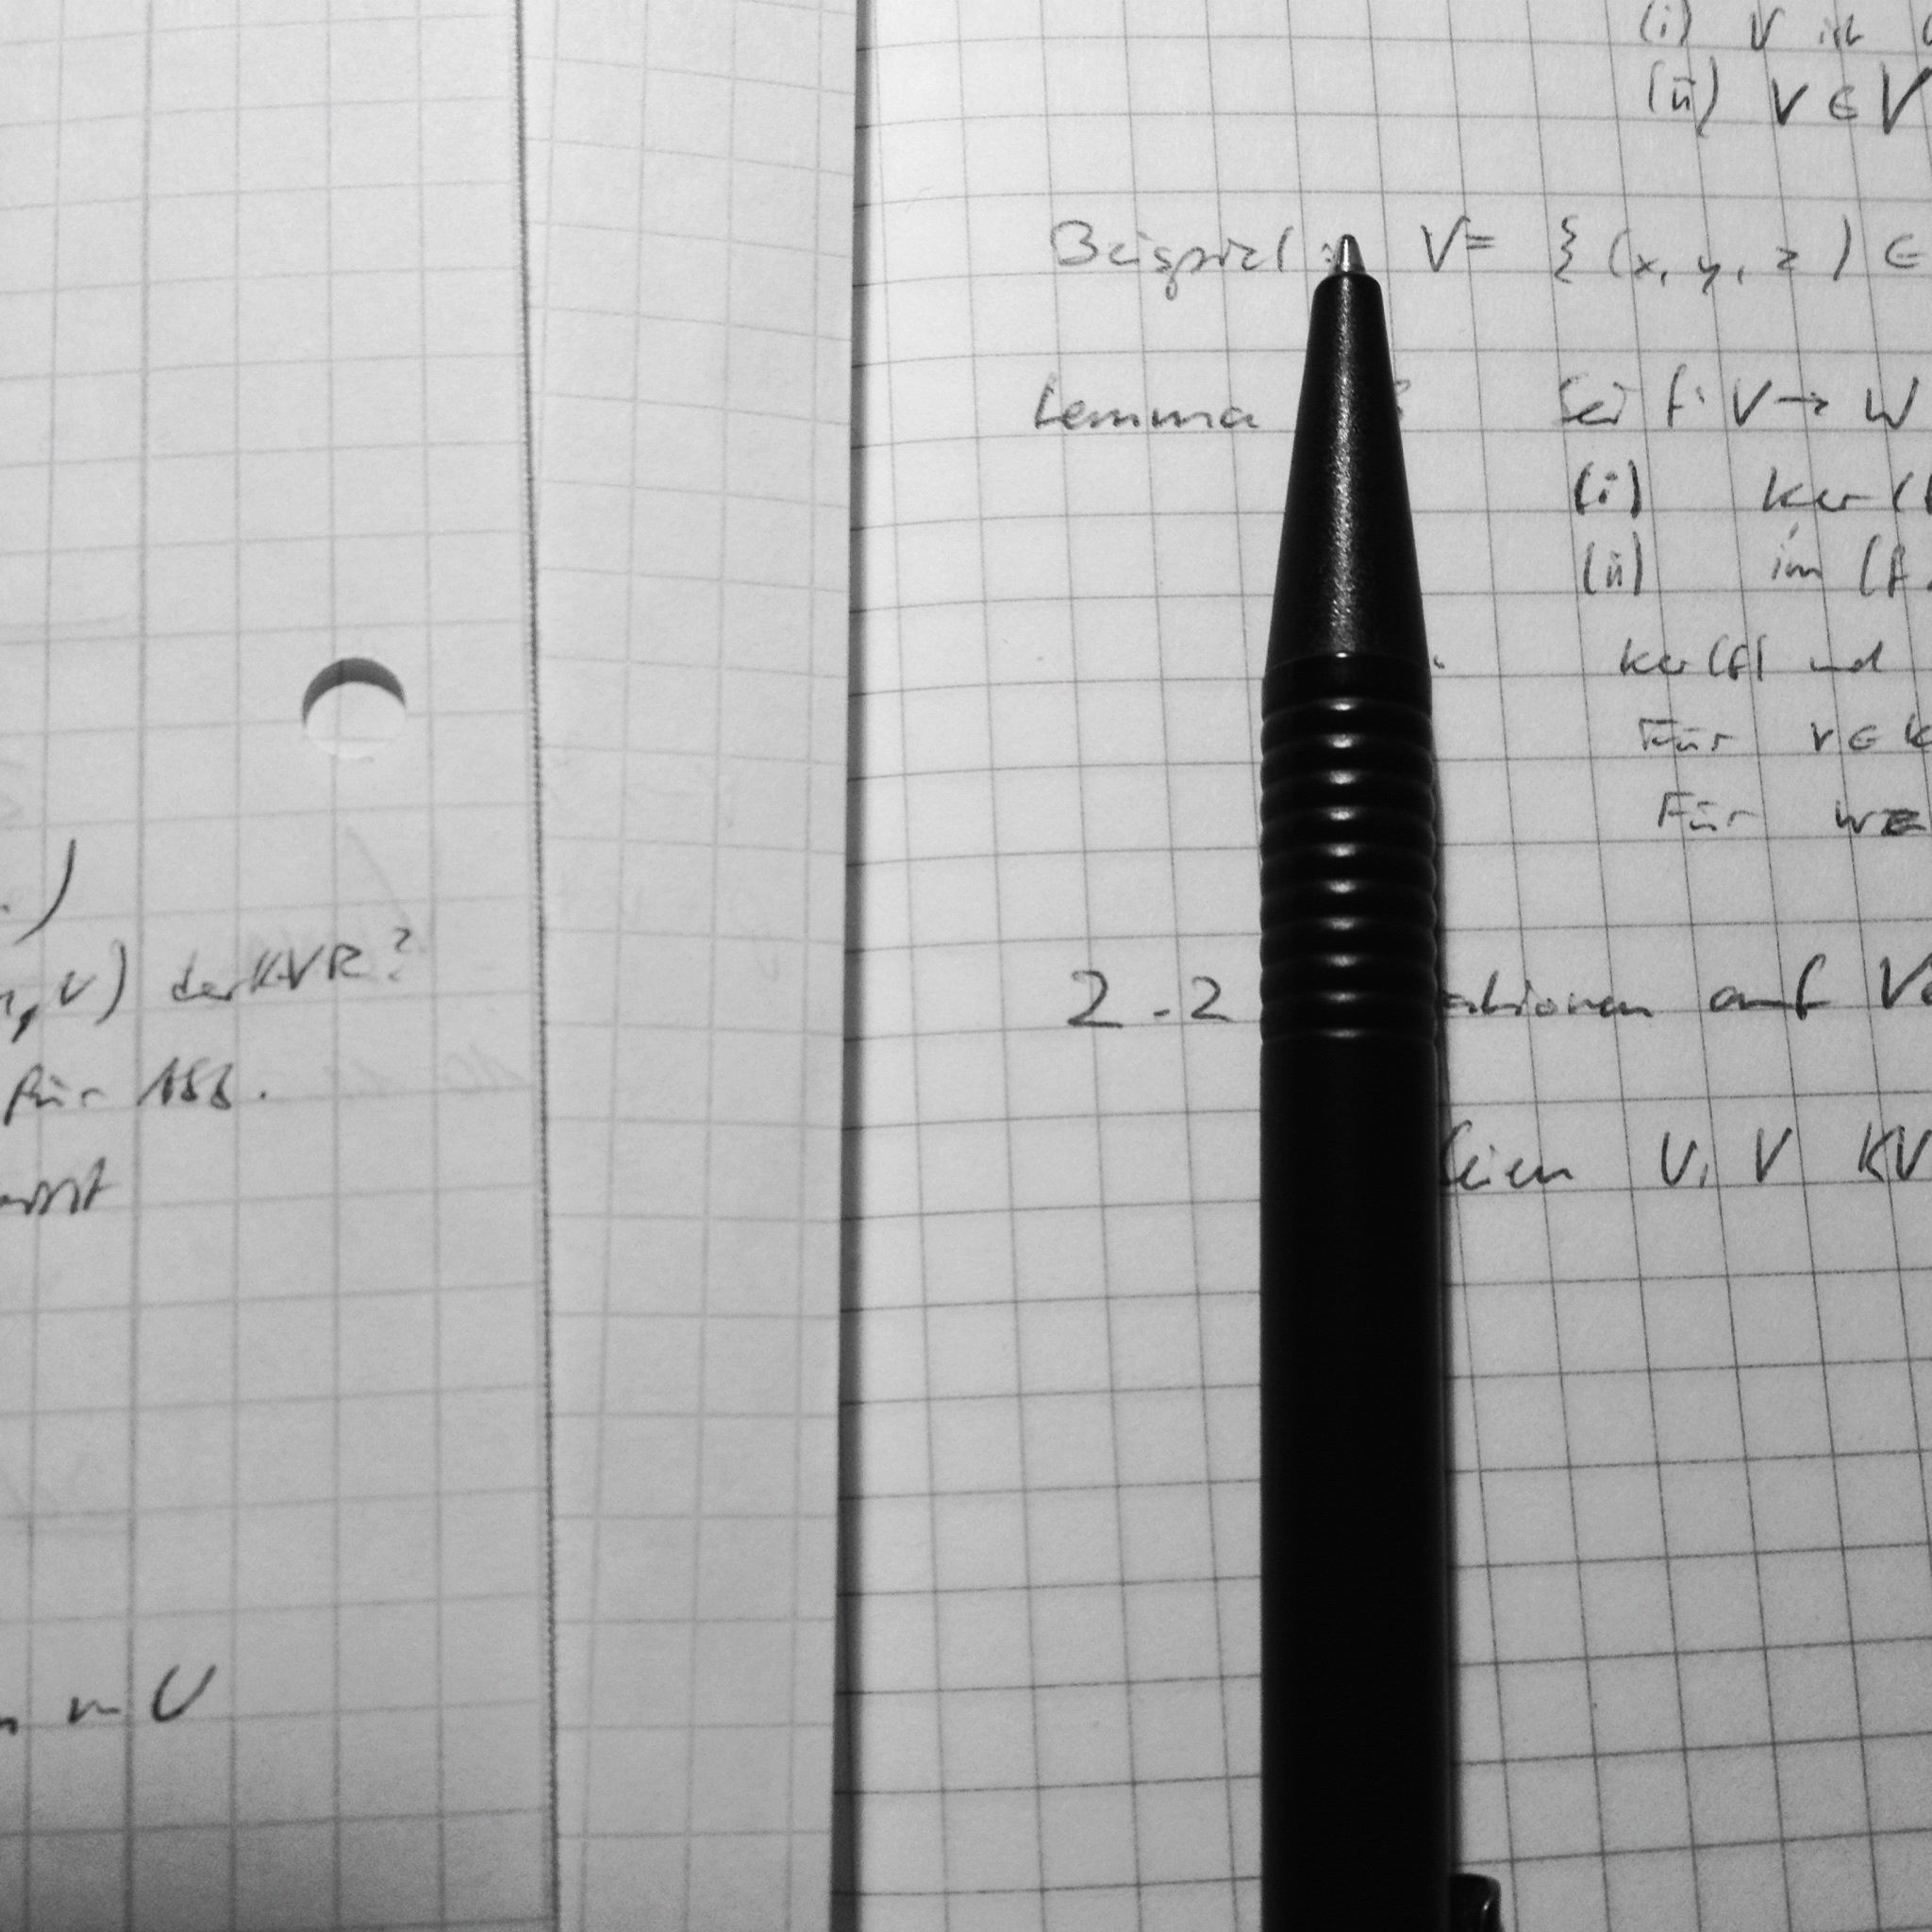 )
, V) der KVR?
für Abb.
m U
(i) V ist
(ii) V ∈ V
Beispiel : V = { (x, y, z) ∈
Lemma Sei f: V → W
(i) ker (f
(ii) im (f
ker (f) und
Für v ∈ k
Für w ∈
2.2 ationen auf Ve
Seien U, V KV